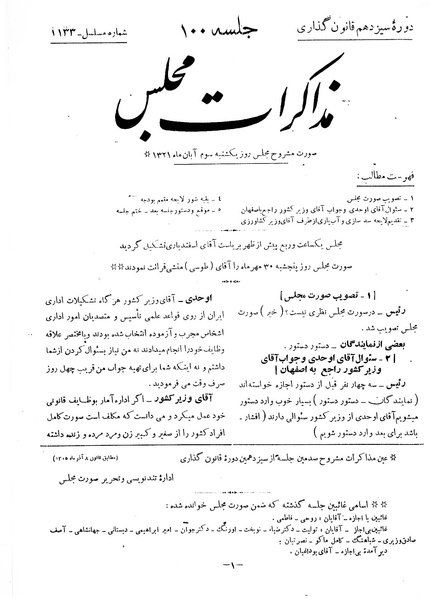 دورهٔ سیزدهم قانون گذاری
جلسه ۱۰۰
شماره مسلسل - ۱۱۳۳
مذاکرات مجلس
صورت مشروح مجلس روز یکشنبه سوم آبان ماه ۱۳۲۱ *
فهرست مطالب :
۱ - تصویب صورت مجلس
۲ - سئوال آقای اوحدی و جواب آقای وزیر کشور راجع باصفهان
۳ - تقدیم لایحه سد سازی و آبیاری از طرف آقای وزیر کشاورزی
۴ - بقیه شور لایحه متمم بودجه
۵ - موقع و دستور جلسه بعد - ختم جلسه
مجلس یکساعت و ربع پیش از ظهر بریاست آقای اسفندیاری تشکیل گردید
صورت مجلس روز پنجشنبه ۳۰ مهر ماه را آقای ( طوسی ) منشی قرائت نمودند *
[ ۱ - تصویب صورت مجلس ]
رئیس - در صورت مجلس نظری نیست ؟ ( خیر ) صورت
مجلس تصویب شد .
بعضی از نمایندگان - دستور دستور .
[ ۲ - سئوال آقای اوحدی و جواب آقای
وزیر کشور راجع به اصفهان ]
رئیس - سه چهار نفر قبل از دستور اجازه خواسته اند
( نمایندگان - دستور دستور ) بسیار خوب وارد دستور
میشویم آقای اوحدی از وزیر کشور سئوالی دارند ( افشار -
باشد برای بعد وارد دستور شویم )
اوحدی - آقای وزیر کشور هرگاه تشکیلات اداری
ایران از روی قواعد علمی تأسیس و متصدیان امور اداری
اشخاص مجرب و آزموده انتخاب شده بودند و بمختصر علاقه
وظایف خود را انجام میدادند نه من نیاز بسئوال کردن از شما
داشتم و نه اینکه شما برای تهیه جواب من قریب چهل روز
صرف وقت می فرمودید .
آقای وزیر کشور - اگر اداره آمار بوظایف قانونی
خود عمل میکرد و می دانست که مکلف است صورت کامل
افراد کشور را از صغیر و کبیر زن و مرد مرده و زنده داشته
* عین مذاکرات مشروح صدمین جلسه از سیزدهمین دورهٔ قانون گذاری
( مطابق قانون ۸ آذر ماه ۱۳۰۵ )
اداره تندنویسی و تحریر صورت مجلس
* اسامی غائبین جلسه گذشته که ضمن صورت مجلس خوانده شده :
غائبین با اجازه - آقایان : روحی - فاطمی .
غائبین بی اجازه - آقایان : تولیت - دکتر ضیاء - نوبخت - اورنگ - دکتر جوان - امیر ابراهیمی - دبستانی - جهانشاهی - آصف
صادق وزیری - شباهنگ - کامل ماکو - نصرتیان :
دیر آمدهٔ بی اجازه - آقای بوداغیان .
- ۱ -